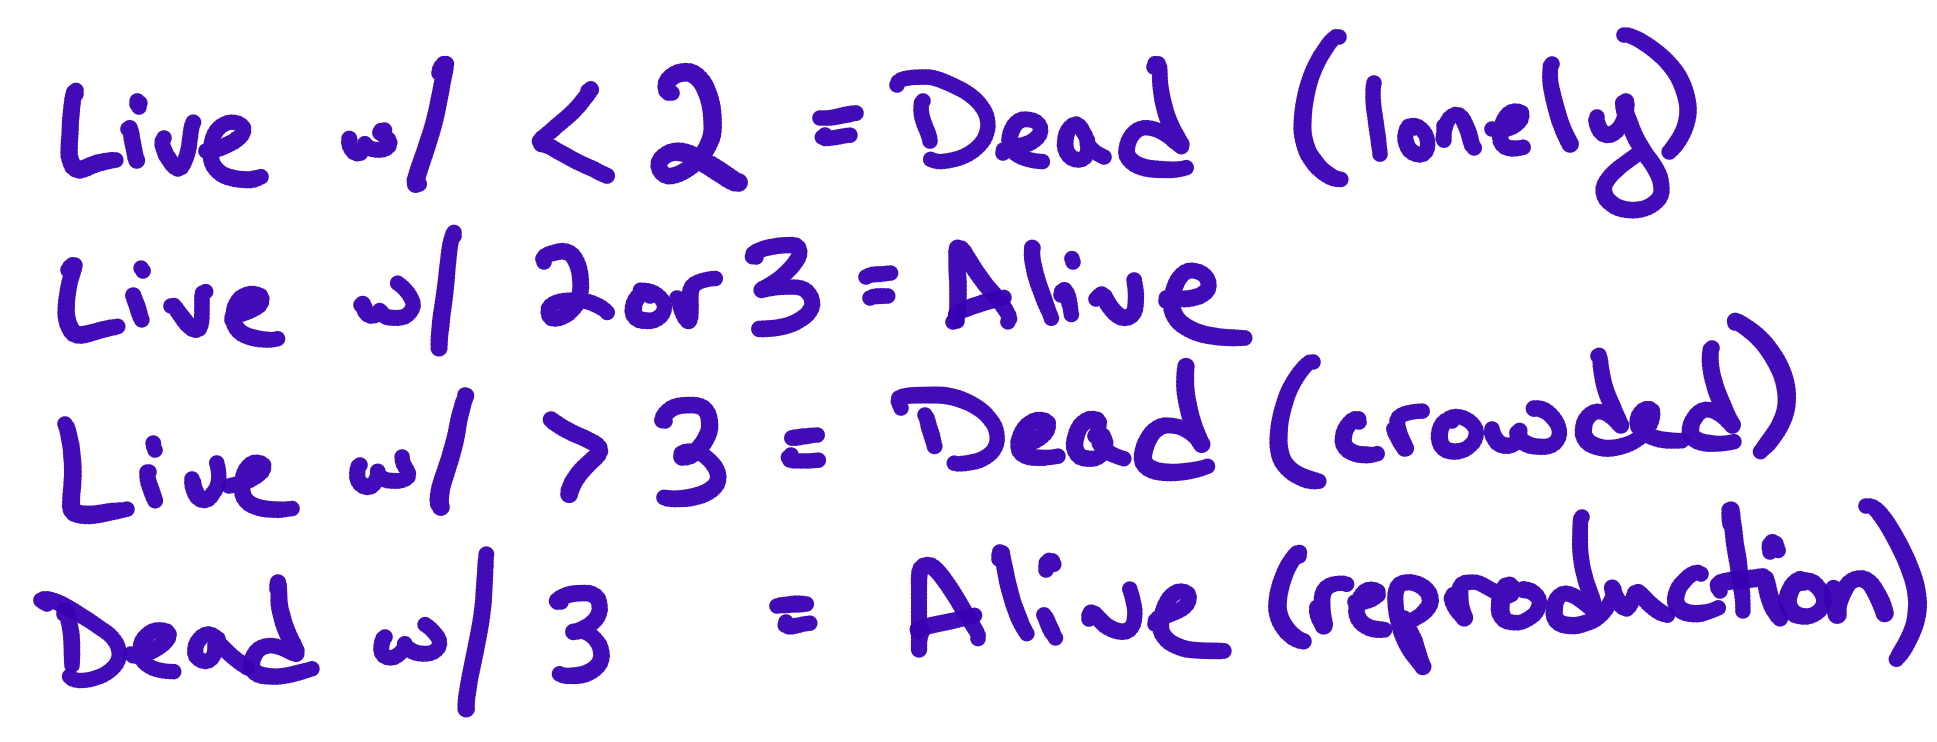 Live w/ < 2 = Dead (lonely)
Live w/ 2 or 3 = Alive
Live w/ > 3 = Dead (crowded)
Dead w/ 3 = Alive (reproduction)